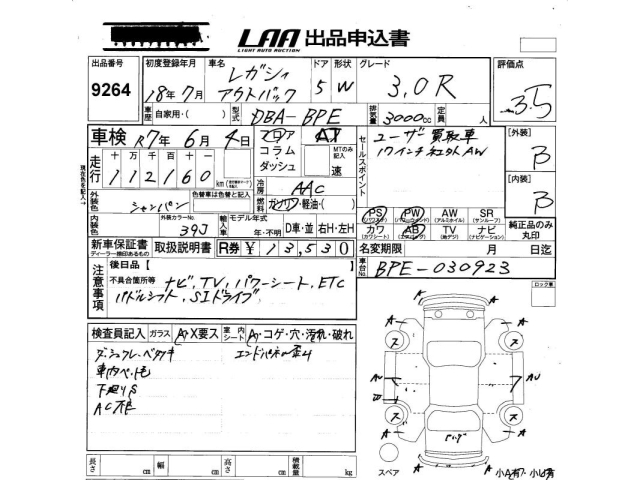 LAA 出品申込書
LIGHT AUTO AUCTION
出品番号 9264
初度登録年月 18年7月
車名 レガシィ アウトバック
ドア 5 形状 W
グレード 3.0R
評価点 3.5
車歴 自家用・( )
型式 DBA-BPE
排気量 3000cc 定員 人
車検 R7年 6月 4日
フロア コラム・ダッシュ
AT
MTのみ記入 速
セールスポイント
ユーザ買取車
17インチ AW
[外装] B
[内装] B
走行 十 万 千 百 十 一
112160 km
現在色を記入
外装色 シャンパン
色替車は色替と記入
冷房 AAC
燃料 ガソリン・軽油・( )
PS PW AW SR
(パワステ) (パワーウインド) (アルミホイル) (サンルーフ)
カワ AB TV ナビ
(カワシート) (エアバック) (地デジ) (ナビゲーション)
純正品のみ丸印
内装色
外装カラーNo. 39J
輸入車 モデル年式 年・不明
D車・並 右H・左H
新車保証書 取扱説明書 R券 ¥ 13,530
ディーラー捺印あるもの
名変期限 月 日迄
車台No. BPE-030923
注意事項
後日品 [ ]
不具合箇所等 ナビ、TV、パワーシート、ETC
パドルシフト、SIドライブ
ロック車
検査員記入 ガラス A・X要ス 室内シート A・コゲ・穴・汚れ・破れ
車内ペット毛
下廻りS
AC不良
A
A
ス
ス
AU
AU
ス
ス
A
A
スペア
長さ cm 幅 cm 高さ cm 積載量 kg